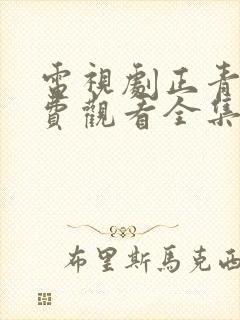 電視劇正青
費觀看全集
布里斯馬克西